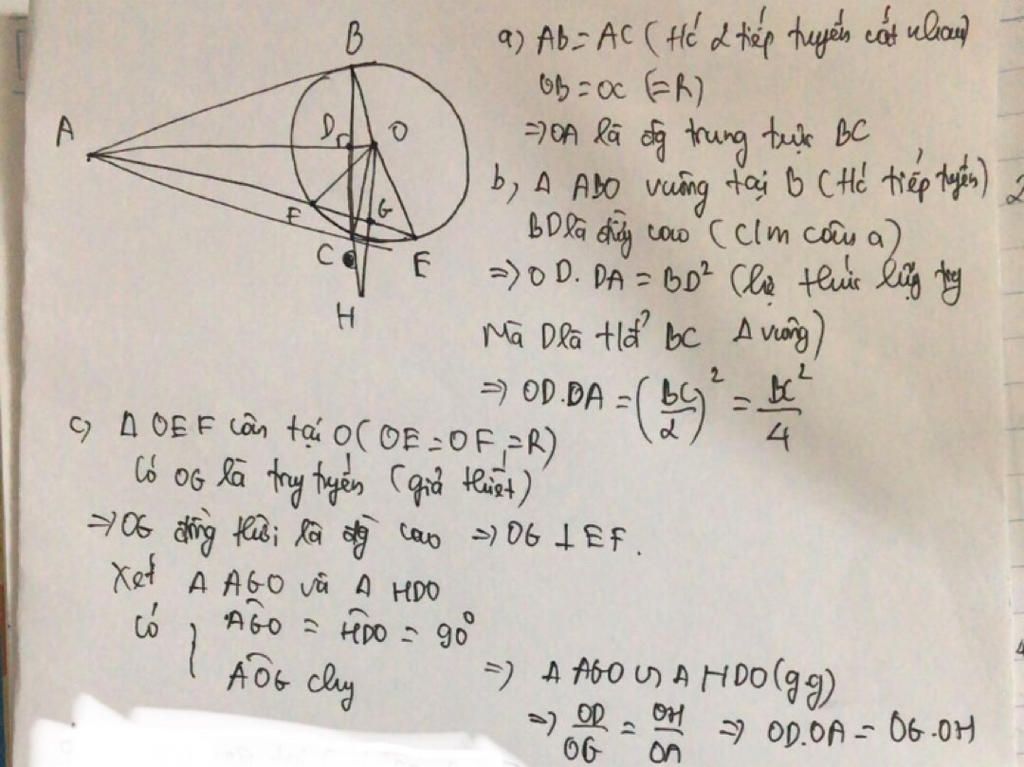 B
A
D
O
F
G
C
E
H
a) AB = AC (t/c 2 tiếp tuyến cắt nhau)
OB = OC (=R)
=> OA là đg trung trực BC
b, Δ ABO vuông tại B (t/c tiếp tuyến)
BD là đg cao (c/m câu a)
=> OD. DA = BD² (hệ thức lượng trg
Mà D là tđ BC Δ vuông)
=> OD.DA = (BC/2)² = BC²/4
c, Δ OEF cân tại O (OE = OF, = R)
Có OG là trg tuyến (giả thiết)
=> OG đồng thời là đg cao => OG ⊥ EF.
Xét Δ AGO và Δ HDO
có { AGO = HDO = 90°
AOG chg
=> Δ AGO ∽ Δ HDO (gg)
=> OD/OG = OH/OA => OD.OA = OG.OH